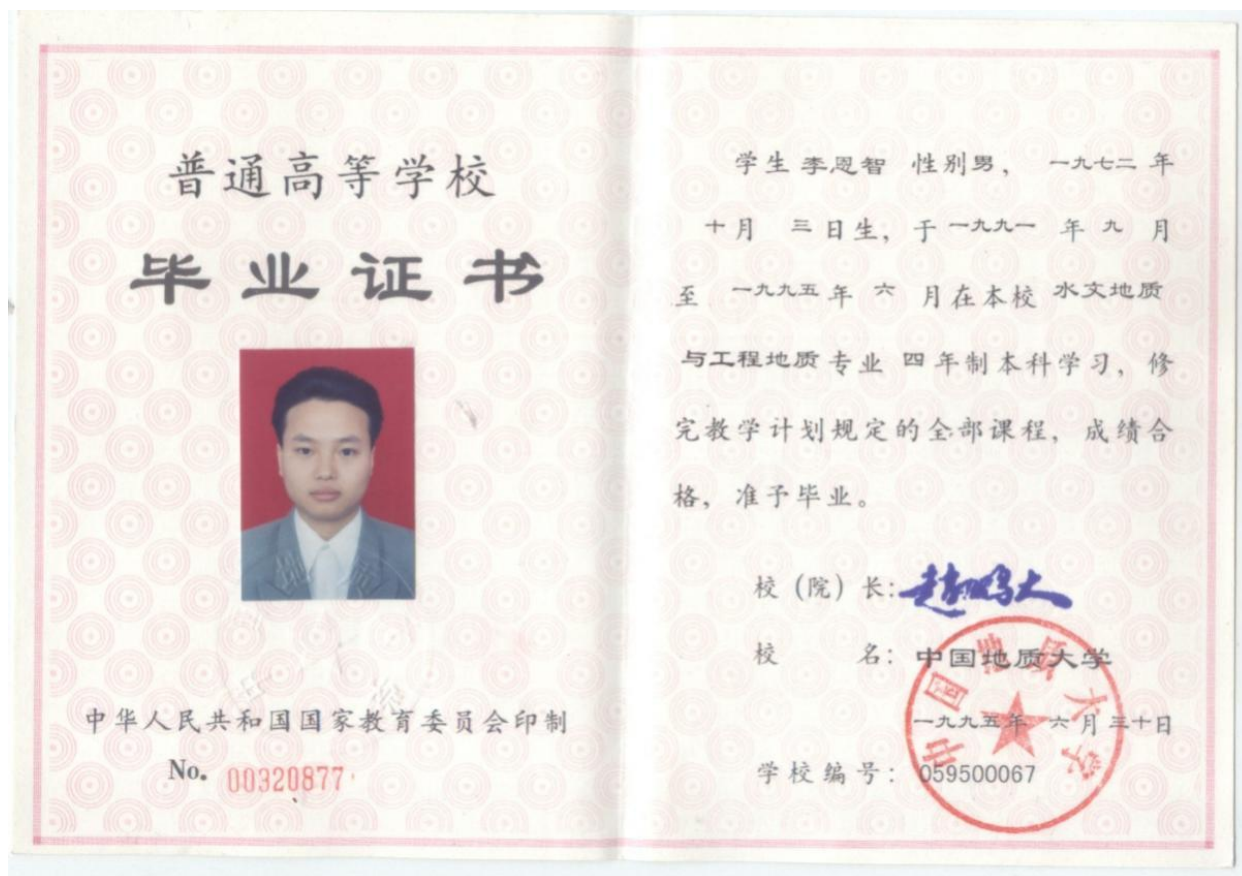 普通高等学校
毕业证书
中华人民共和国国家教育委员会印制
No. 00320877
学生 李恩智 性别男, 一九七二 年
十月 三日生, 于一九九一 年 九 月
至 一九九五年 六 月在本校 水文地质
与工程地质专业 四年制本科学习, 修
完教学计划规定的全部课程, 成绩合
格, 准予毕业。
校 (院) 长: 赵鹏大
校 名: 中国地质大学
中国地质大学
一九九五年 六月三十日
学校编号: 059500067